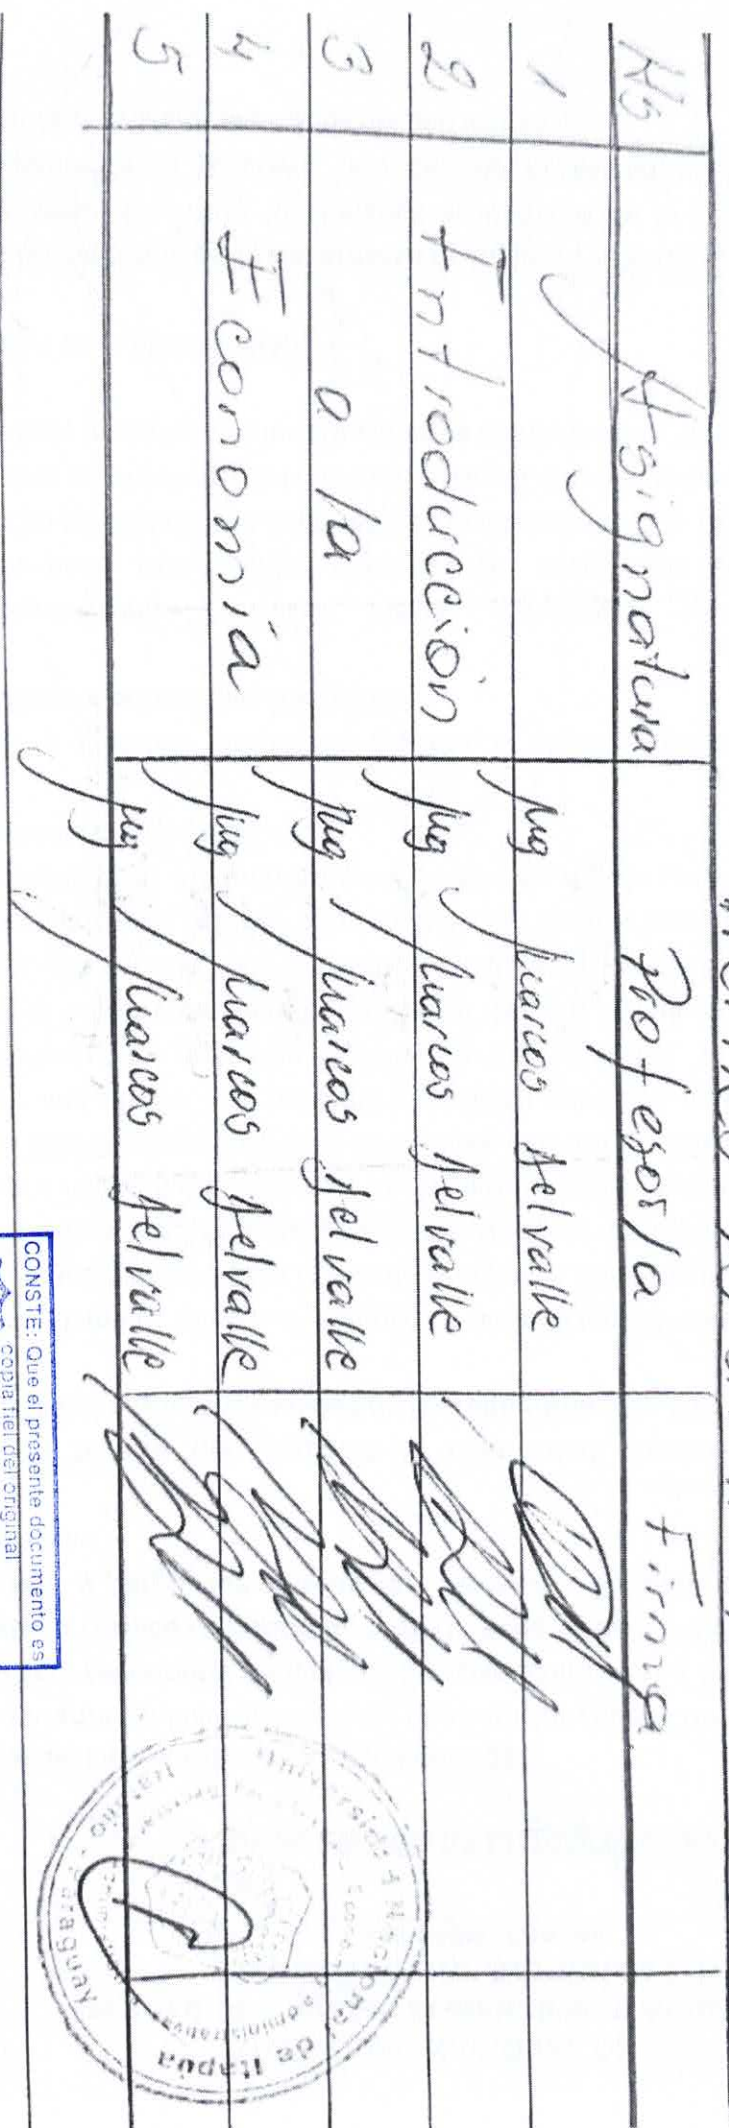 Hs Asignatura Profesor/a Firma
1 Mg Marcos Delvalle
2 Introducción Mg Marcos Delvalle
3 a la Mg Marcos Delvalle
4 Economía Mg Marcos Delvalle
5 Mg Marcos Delvalle
CONSTE: Que el presente documento es
copia fiel del original
Universidad Nacional de Itapúa
Paraguay